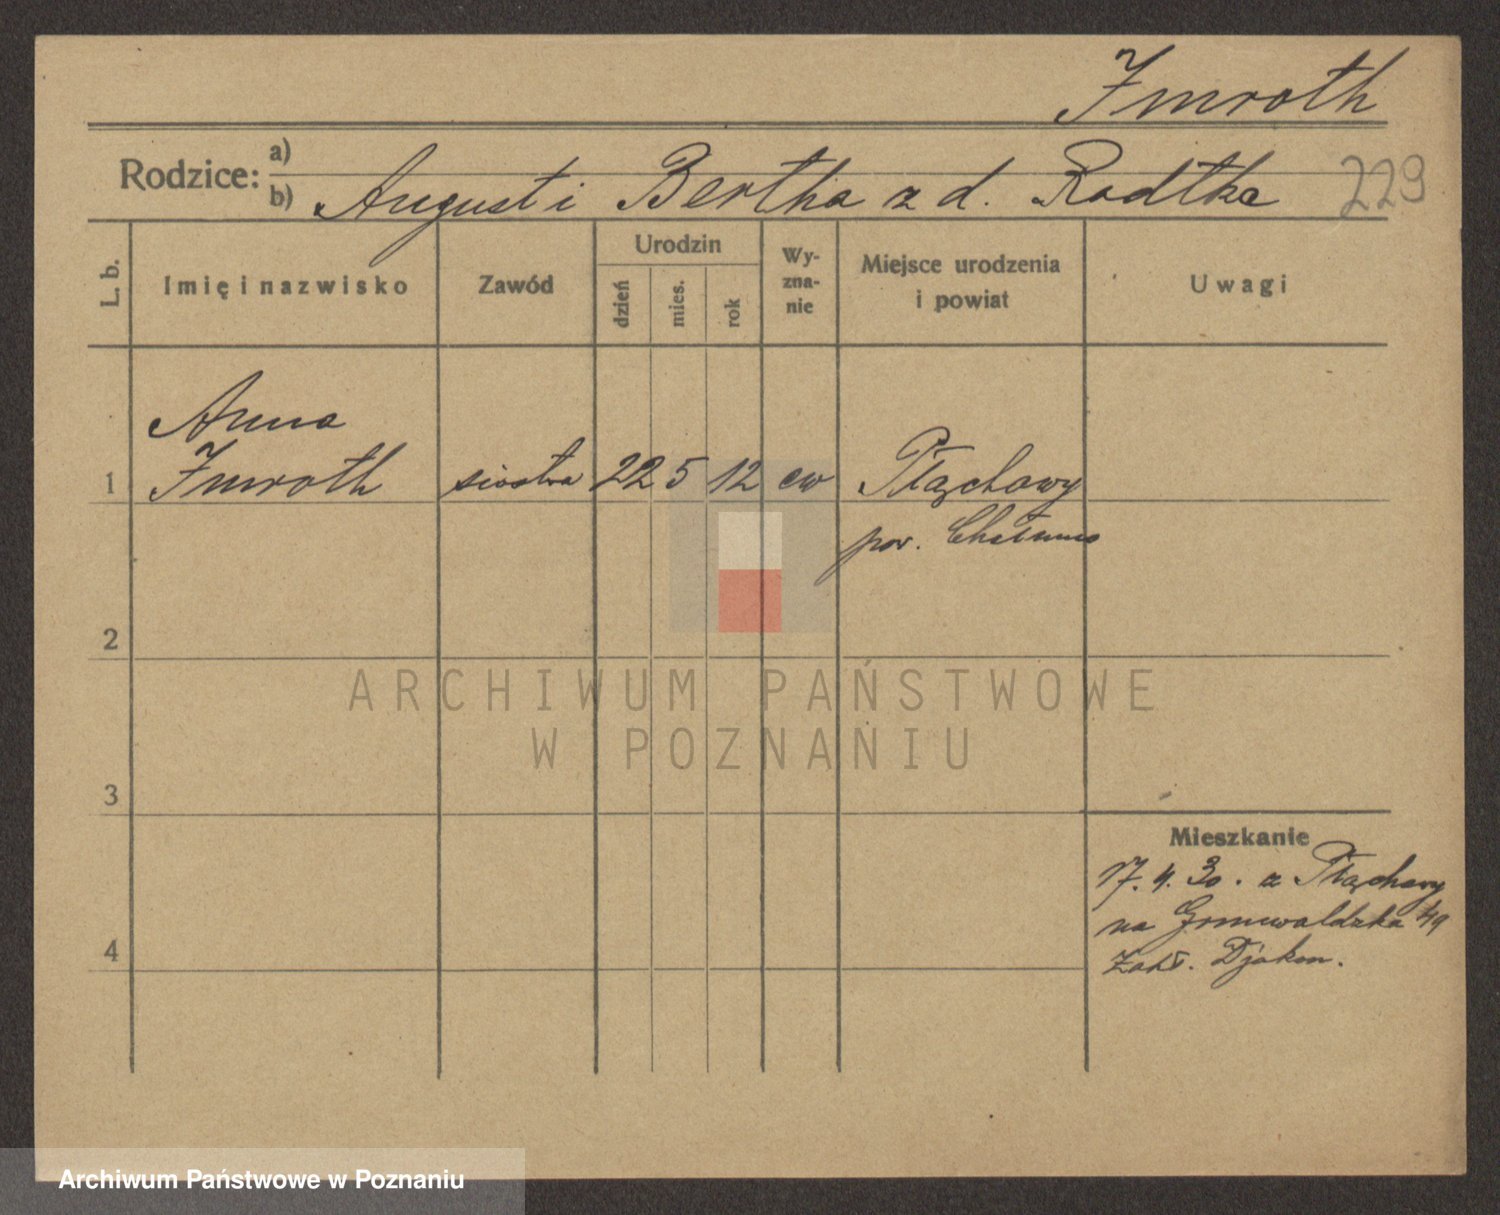 Imroth
Rodzice: a)
b) August i Bertha z d. Radtke
229
L. b.
Imię i nazwisko
Zawód
Urodzin
dzień
mies.
rok
Wy-
zna-
nie
Miejsce urodzenia
i powiat
Uwagi
Anna
1 Imroth siostra 22 5 12 ew Płąchawy
pov. Chełmno
2
3
4
Mieszkanie
17.4.30. z Płąchawy
na Grunwaldzka 49
Zakł. Djakon.
ARCHIWUM PAŃSTWOWE
W POZNANIU
Archiwum Państwowe w Poznaniu